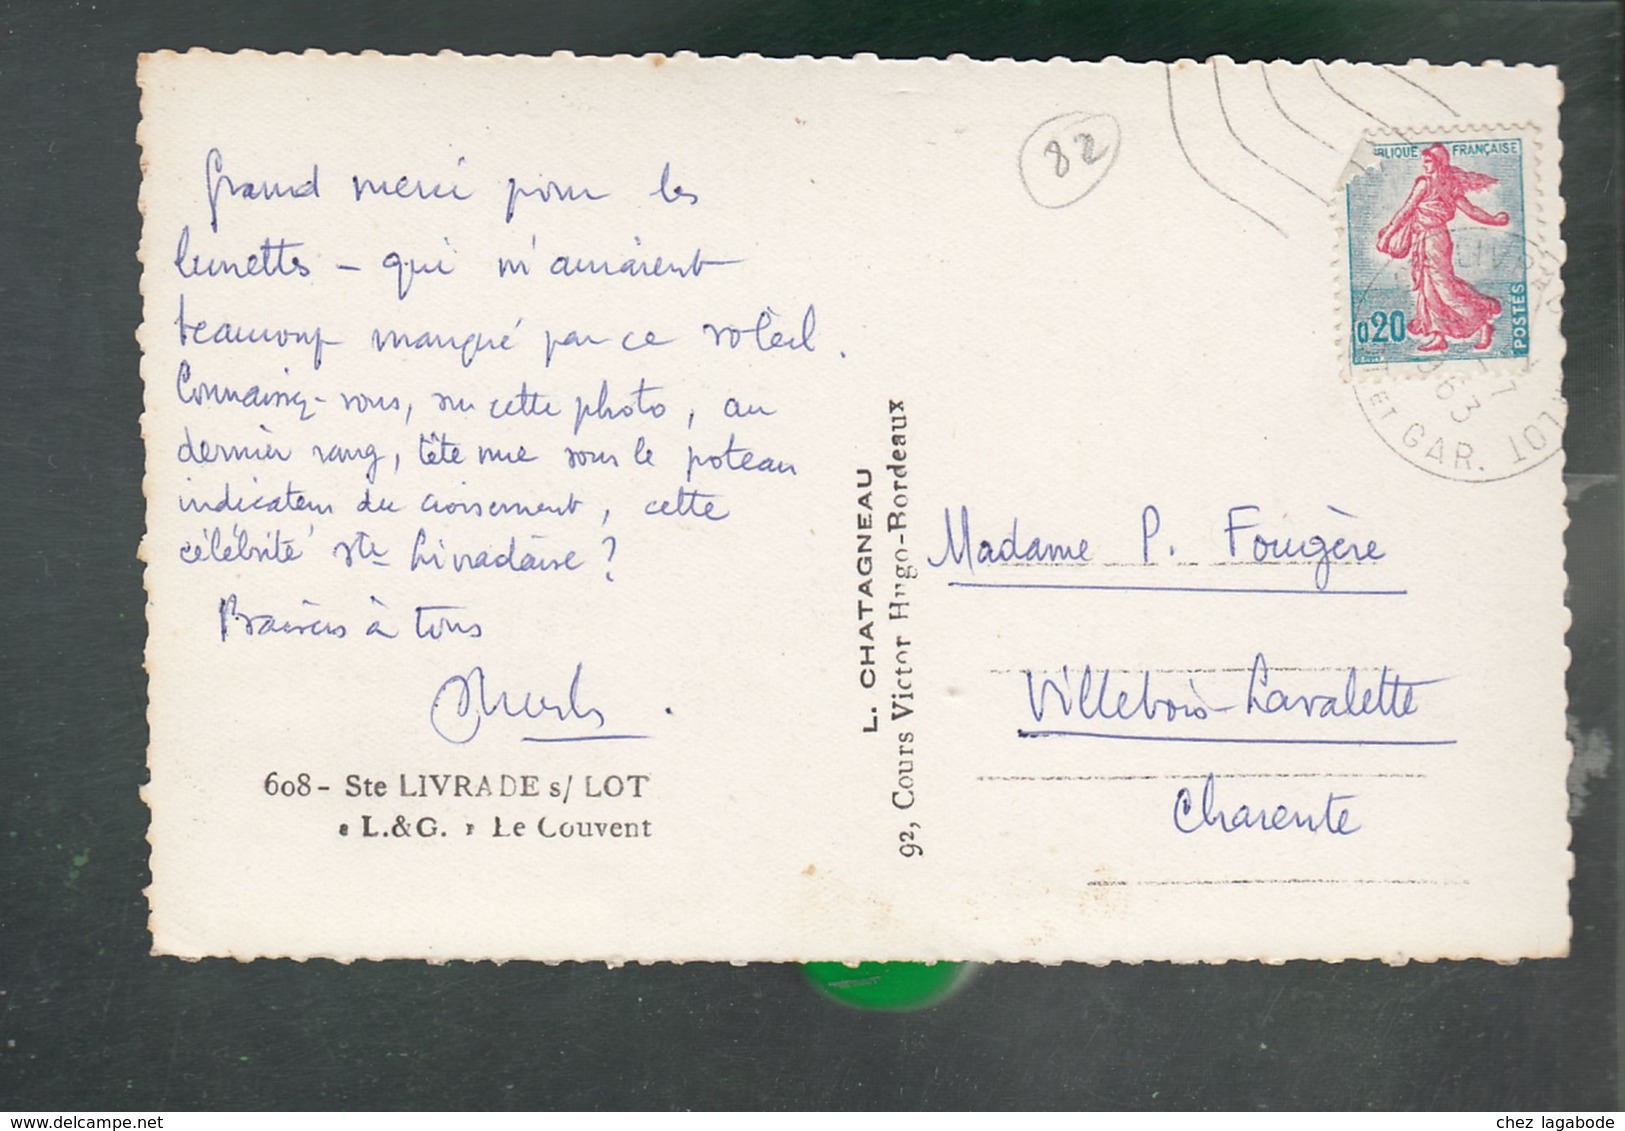 Grand merci pour les
lunettes – qui m'auraient
beaucoup manqué par ce soleil.
Connaissez-vous, sur cette photo, au
dernier rang, tête nue sous le poteau
indicateur du croisement, cette
célébrité Ste Livradaise ?
Baisers à tous
608 - Ste LIVRADE s/ LOT
« L.&G. » Le Couvent
L. CHATAGNEAU
92, Cours Victor Hugo-Bordeaux
82
BLIQUE FRANÇAISE
0,20
POSTES
ET GAR. LOT
1963
Madame P. Fougère
Villebois-Lavalette
Charente
chez lagabode